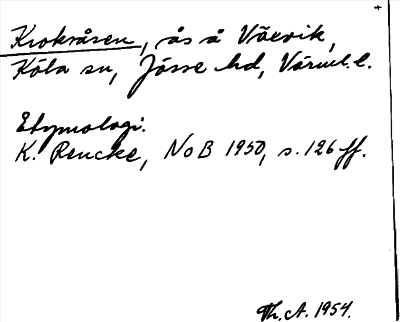 Krokåsen, ås å Växvik,
Köla sn, Jösse hd, Värml. l.
Etymologi.
K. Rencke, NoB 1950, s. 126 ff.
Th. A. 1954.